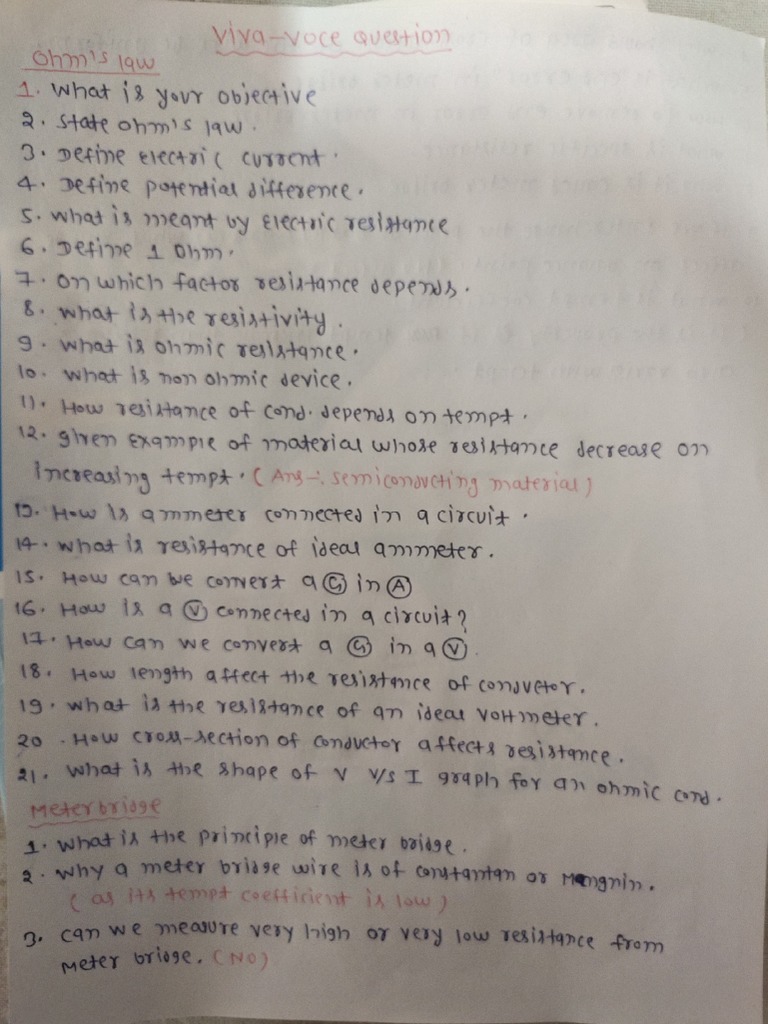 Viva-voce question
Ohm's law
1. What is your objective
2. State ohm's law.
3. Define electric current.
4. Define potential difference.
5. What is meant by Electric resistance
6. Define 1 Ohm.
7. On which factor resistance depends.
8. What is the resistivity.
9. What is ohmic resistance.
10. What is non ohmic device.
11. How resistance of cond. depends on tempt.
12. given Example of material whose resistance decrease on
increasing tempt. (Ans-: semiconducting material)
13. How is ammeter connected in a circuit.
14. What is resistance of ideal ammeter.
15. How can we convert a G in A
16. How is a V connected in a circuit?
17. How can we convert a G in a V.
18. How length affect the resistance of conductor.
19. What is the resistance of an ideal voltmeter.
20. How cross-section of conductor affects resistance.
21. What is the shape of V V/S I graph for an ohmic cond.
Meter bridge
1. What is the principle of meter bridge.
2. Why a meter bridge wire is of constantan or Mangnin.
(as its tempt coefficient is low)
3. Can we measure very high or very low resistance from
Meter bridge. (No)